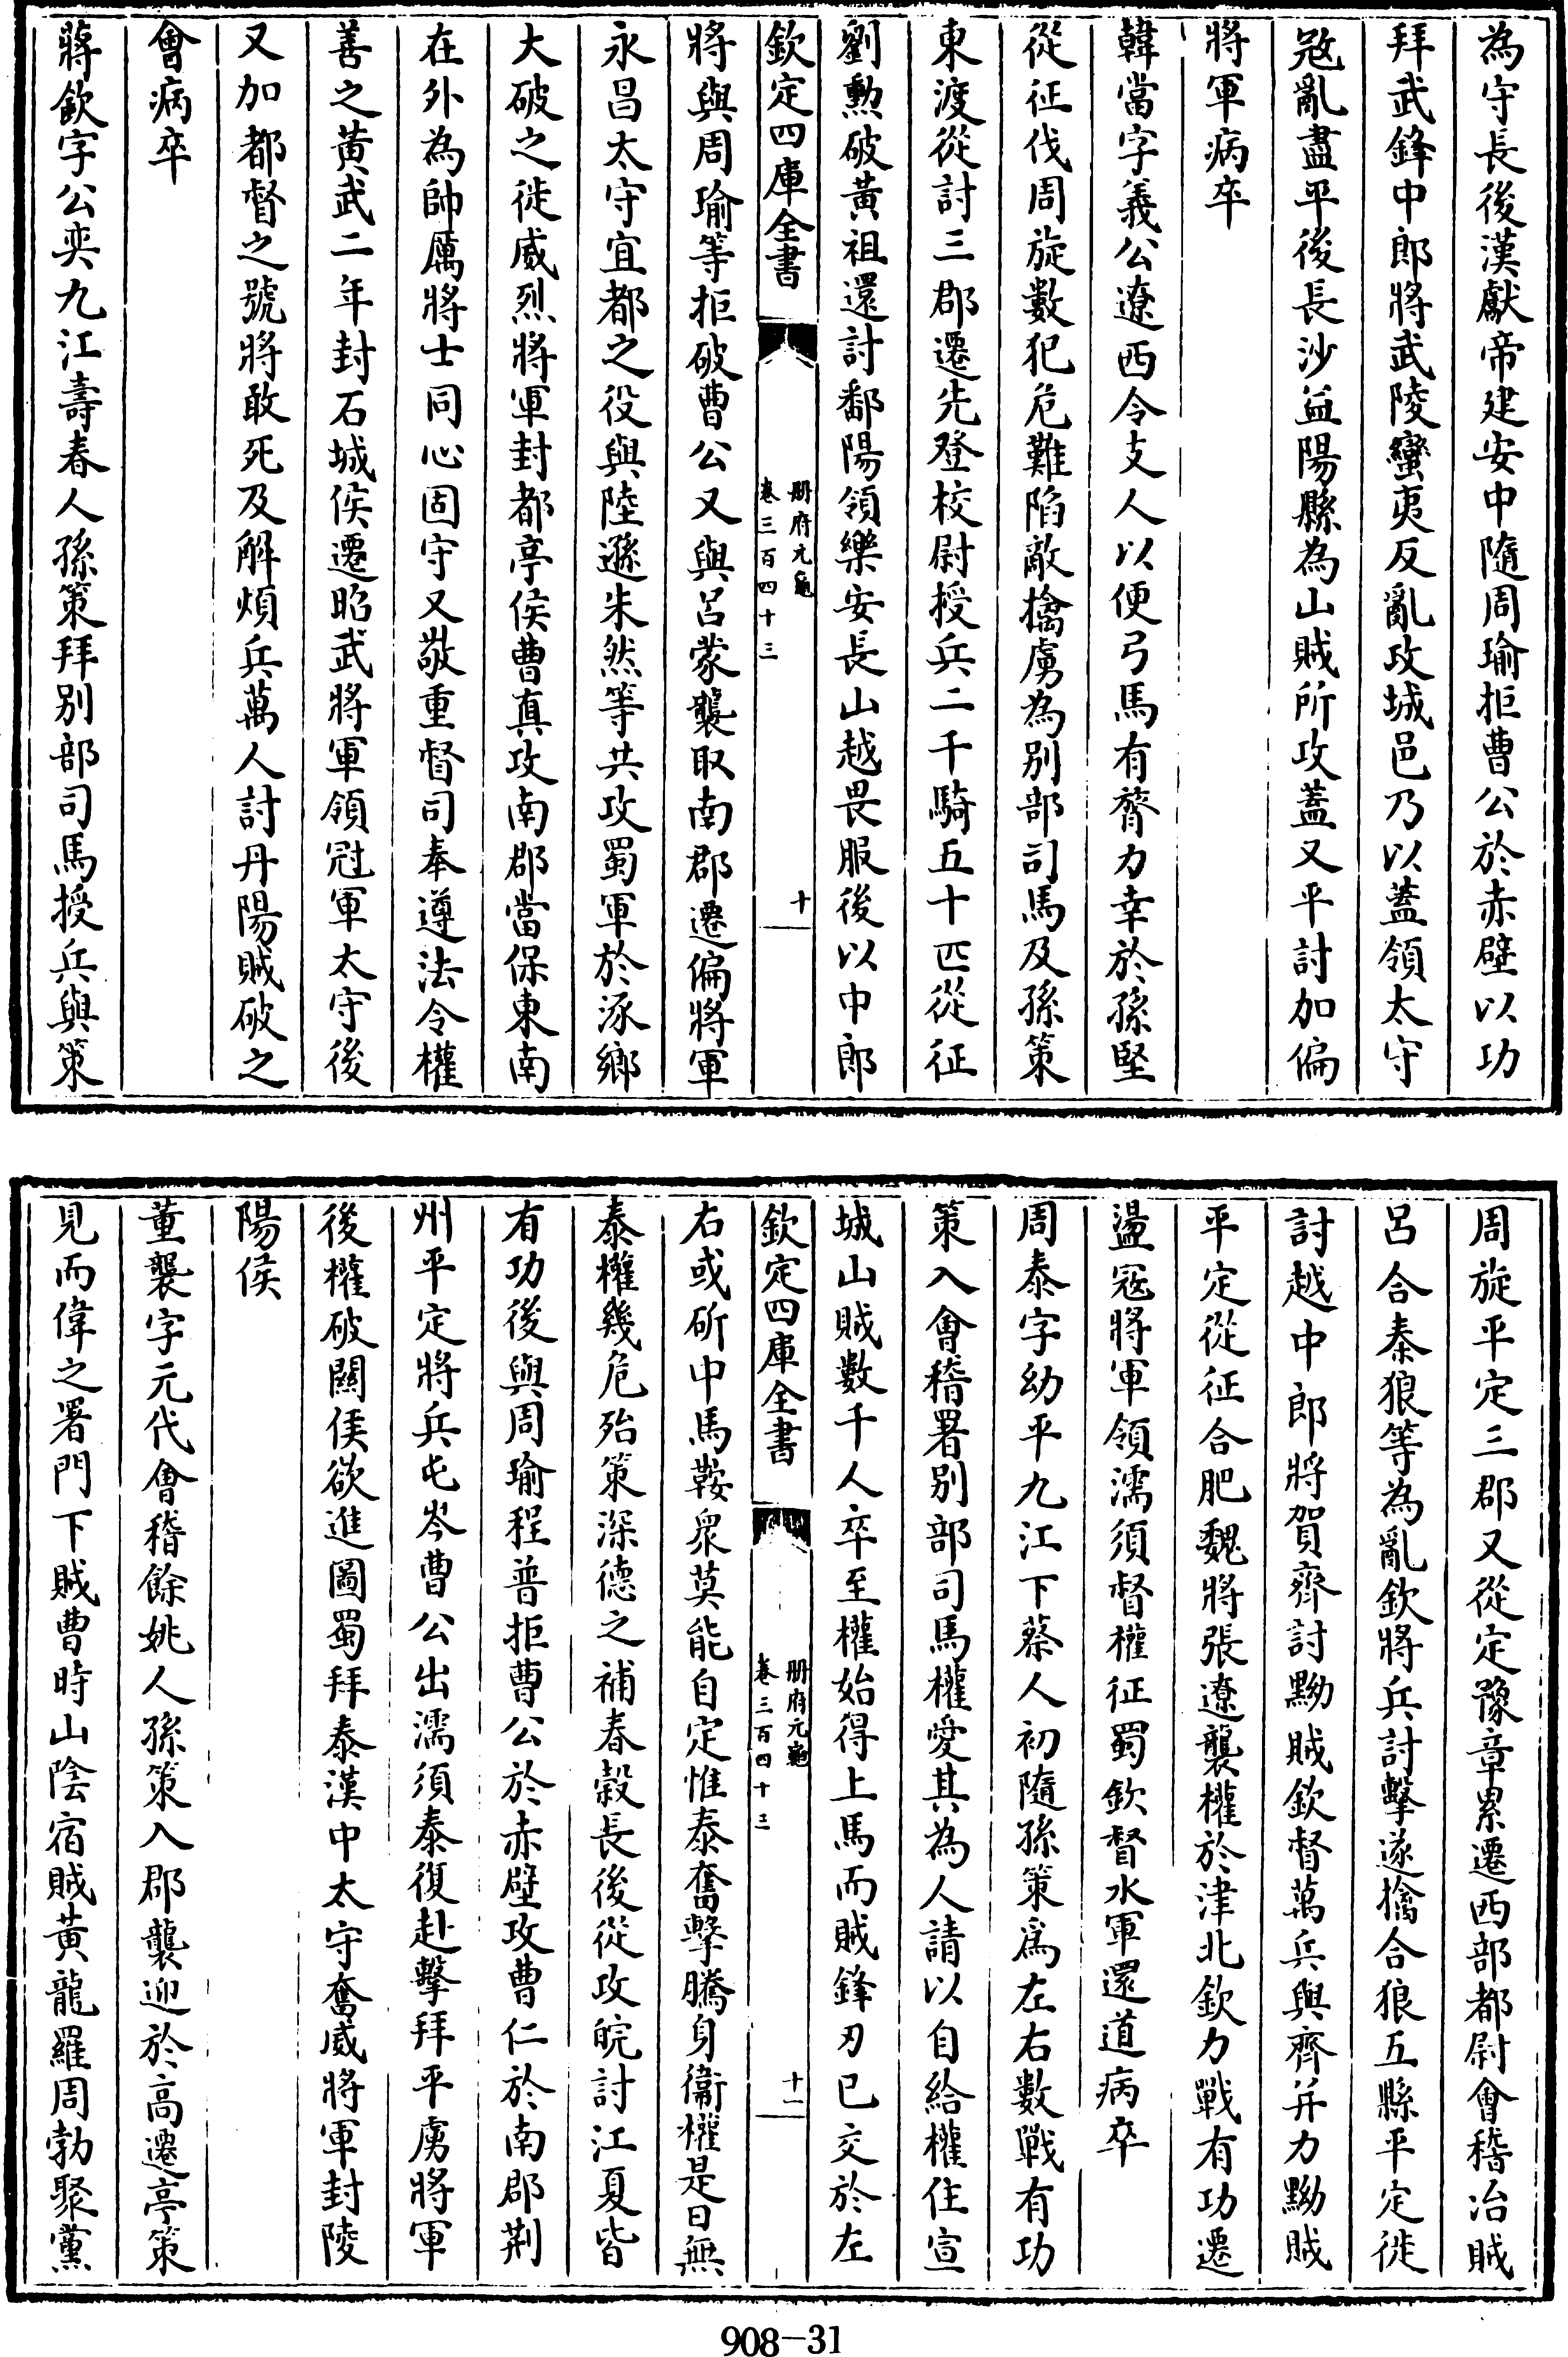 為守長後漢獻帝建安中隨周瑜拒曹公於赤壁以功
拜武鋒中郎將武陵蠻夷反亂攻城邑乃以蓋領太守
冦亂盡平後長沙益陽縣為山賊所攻蓋又平討加偏
將軍病卒
韓當字義公遼西令支人以便弓馬有膂力幸於孫堅
從征伐周旋數犯危難陷敵擒虜為别部司馬及孫策
東渡從討三郡遷先登校尉授兵二千騎五十匹從征
劉勲破黃祖還討鄱陽領樂安長山越畏服後以中郎
欽定四庫全書
冊府元龜
卷三百四十三
十
將與周瑜等拒破曹公又與呂蒙襲取南郡遷偏將軍
永昌太守宜都之役與陸遜朱然等共攻蜀軍於涿鄉
大破之徙威烈將軍封都亭侯曹真攻南郡當保東南
在外為帥厲將士同心固守又敬重督司奉遵法令權
善之黃武二年封石城侯遷昭武將軍領冠軍太守後
又加都督之號將敢死及解煩兵萬人討丹陽賊破之
會病卒
蔣欽字公奕九江壽春人孫策拜别部司馬授兵與策
周旋平定三郡又從定豫章累遷西部都尉會稽冶賊
呂合秦狼等為亂欽將兵討擊遂擒合狼五縣平定徙
討越中郎將賀齊討黝賊欽督萬兵與齊并力黝賊
平定從征合肥魏將張遼襲權於津北欽力戰有功遷
盪冦將軍領濡須督權征蜀欽督水軍還道病卒
周泰字幼平九江下蔡人初隨孫策爲左右數戰有功
策入會稽署别部司馬權愛其為人請以自給權住宣
城山賊數千人卒至權始得上馬而賊鋒刃已交於左
欽定四庫全書
冊府元龜
卷三百四十三
十一
右或斫中馬鞍衆莫能自定惟泰奮擊騰身衞權是日無
泰權幾危殆策深德之補春穀長後從攻皖討江夏皆
有功後與周瑜程普拒曹公於赤壁攻曹仁於南郡荆
州平定將兵屯岑曹公出濡須泰復赴擊拜平虜將軍
後權破關侯欲進圖蜀拜泰漢中太守奮威將軍封陵
陽侯
董襲字元代會稽餘姚人孫策入郡襲迎於高遷亭策
見而偉之署門下賊曹時山陰宿賊黃龍羅周勃聚黨
908-31